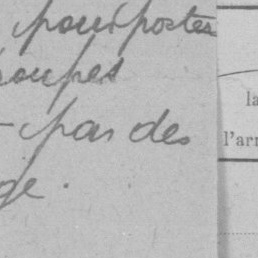 pour portes
oupes
- par des
ge.
la
l'arr